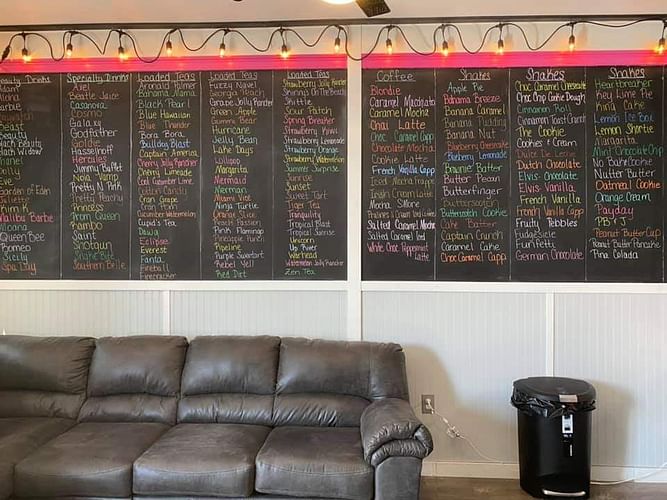 Beauty Drinks
Adam
Aloha
Barbie
Beast
Beauty
Black Beauty
Black Widow
Chanel
Dolly
Eve
Garden of Eden
Juliette
Kim K
Malibu Barbie
Moana
Queen Bee
Romeo
Sicily
Spa Day
Specialty Drinks
Axel
Beetle Juice
Casanova
Cosmo
Galaxy
Godfather
Goldie
Hasselhoff
Hercules
Jimmy Buffet
Nola Vamp
Pretty N Pink
Pretty Peachy
Princess
Prom Queen
Rambo
Saint
Shotgun
Snake Bite
Southern Belle
Loaded Teas
Arnold Palmer
Bahama Mama
Black Pearl
Blue Hawaiian
Blue Thunder
Bora Bora
Bulldog Blast
Captain America
Cherry Jolly Rancher
Cherry Limeade
Cool Cucumber Lime
Cotton Candy
Cran Grape
Cran Mom
Cucumber Watermelon
Cupid's Tea
Dawg
Eclipse
Everest
Fanta
Fireball
Firecracker
Loaded Teas
Fuzzy Navel
Georgia Peach
Grape Jolly Rancher
Green Apple
Gummi Bear
Hurricane
Jelly Bean
Lake Days
Lollipop
Margarita
Mermaid
Merman
Miami Vice
Ninja Turtle
Orange Slice
Peach Passion
Pink Flamingo
Pineapple Punch
Pipeline
Purple Swertart
Rebel Yell
Red Dirt
Loaded Teas
Strawberry Jolly Rancher
Shining On The Beach
Skittle
Sour Patch
Spring Breaker
Strawberry Kiwi
Strawberry Lemonade
Strawberry Orange
Strawberry Watermelon
Summer Surprise
Sunrise
Sunset
Sweet Tart
Tiger Tea
Tranquility
Tropical Blast
Tropical Sunrise
Unicorn
Up River
Warhead
Watermelon Jolly Rancher
Zen Tea
Coffee
Blondie
Caramel Machiato
Caramel Mocha
Chai Latte
Choc Caramel Capp
Chocolate Mocha
Cookie Latte
French Vanilla Capp
Iced Mocha Frappe
Irish Cream Latte
Mocha S'More
Pralines & Cream Iced Coffee
Salted Caramel Mocha
Salted Caramel Iced
White Choc Peppermint
Latte
Shakes
Apple Pie
Banana Breeze
Banana Caramel
Banana Pudding
Banana Nut
Blueberry Cheesecake
Blueberry Lemonade
Brownie Batter
Butter Pecan
Butterfinger
Butterscotch
Butterscotch Cookie
Cake Batter
Captain Crunch
Caramel Cake
Choc Caramel Capp
Shakes
Choc Caramel Cheesecake
Choc Chip Cookie Dough
Cinnamon Roll
Cinnamon Toast Crunch
The Cookie
Cookies & Cream
Dulce De Leche
Dutch Chocolate
Elvis: Chocolate
Elvis: Vanilla
French Vanilla
French Vanilla Capp
Fruity Pebbles
Fudgesicle
Funfetti
German Chocolate
Shakes
Heartbreaker
Key Lime Pie
King Cake
Lemon Ice Box
Lemon Shortie
Margarita
Mint Chocolate Chip
No Bake Cookie
Nutter Butter
Oatmeal Cookie
Orange Cream
Payday
PB & J
Peanut Butter Cup
Peanut Butter Pancake
Pina Colada